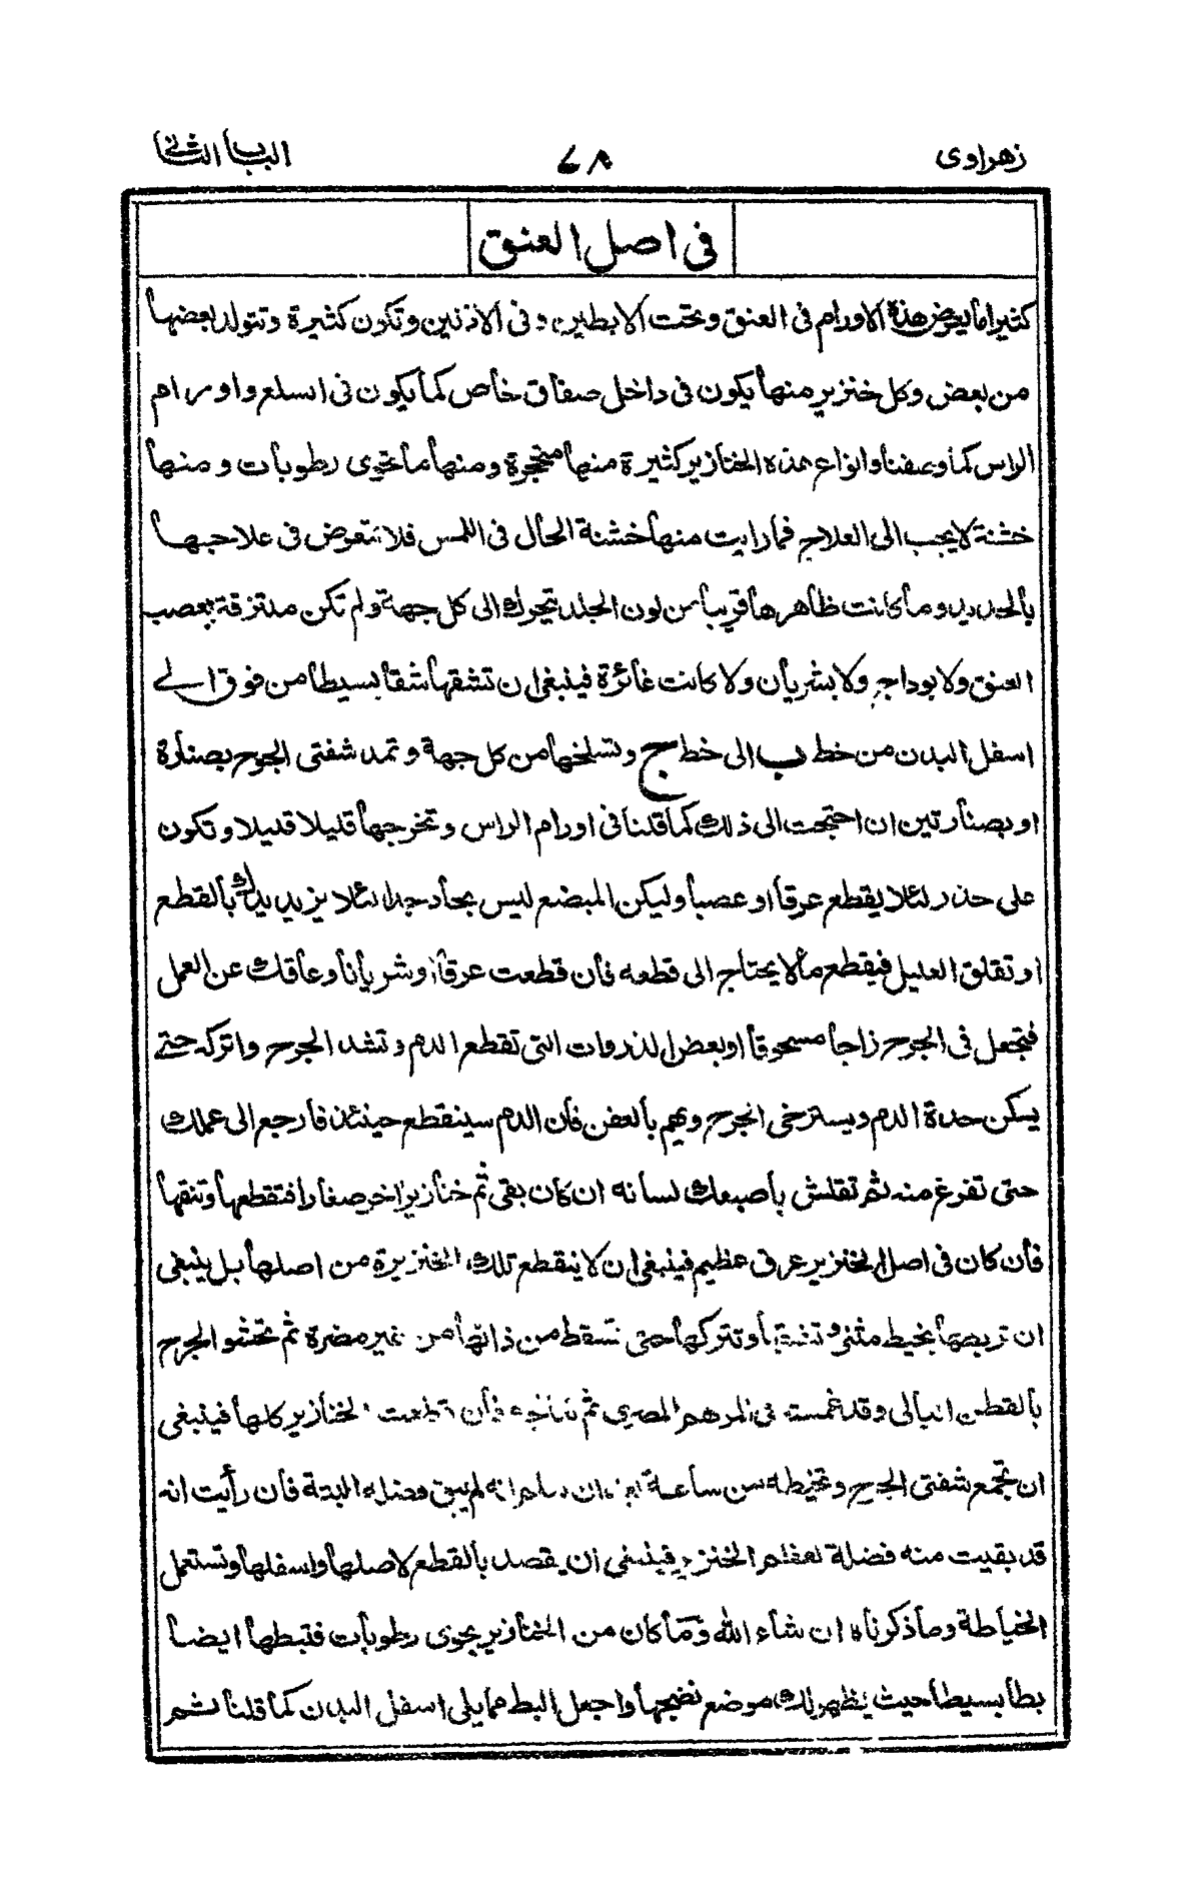 زهراوى ٦٨ الباب الثانى
فى اصل العنق
كثيرا ما يعرض هذة الاورام فى العنق وتحت الابطين وفى الاذنين وتكون كثيرة وتتولد بعضها
من بعض وكل خنزير منها يكون فى داخل صفاق خاص كما يكون فى السلع واورام
الراس كما وصفنا وانواع هذه الخنازير كثيرة منها متحجرة ومنها ما تحوى رطوبات ومنها
خشنة لا يجب الى العلاج فما رايت منها خشنة الحال فى اللمس فلا تتعرض فى علاجها
بالحديد وما كانت ظاهرها قريبا من لون الجلد يتحرك الى كل جهة ولم تكن ملتزقة بعصب
العنق ولا بوداج ولا بشريان ولا كانت غائرة فينبغى ان تشقها شقا بسيطا من فوق الى
اسفل البدن من خط ب الى خط ج وتسلخها من كل جهة وتمد شفتى الجرح بصنارة
او بصنارتين ان احتجت الى ذلك كما قلنا فى اورام الراس وتخرجها قليلا قليلا وتكون
على حذر لئلا يقطع عرقا او عصبا وليكن المبضع ليس بحاد جدا لئلا يزيد يدك بالقطع
او تقلق العليل فيقطع ما لا يحتاج الى قطعه فان قطعت عرقا او شريانا وعاقك عن العمل
فتجعل فى الجرح زاجا مسحوقا او بعض الذروات التى تقطع الدم وتشد الجرح واتركه حتى
يسكن حدة الدم ويسترخى الجرح ويهم بالعفن فان الدم سينقطع حينئذ فارجع الى عملك
حتى تفرغ منه ثم تفتش باصبعك لسانه ان كان بقى ثم خنازير اخر صغارا فتقطعها وتنقها
فان كان فى اصل الخنزير عرق عظيم فينبغى ان لا ينقطع تلك الخنزيرة من اصلها بل ينبغى
ان تربطها بخيط مثنى وتتركها حتى تسقط من ذاتها من غير مضرة ثم تحشو الجرح
بالقطن البالى وقد غمسته فى المرهم المصرى ثم تعالجه فان قطعت الخنازير كلها فينبغى
ان تجمع شفتى الجرح وتخيطه من ساعة لم يبق فضله البتة فان رأيت انه
قد بقيت منه فضلة لعظم الخنزير فينبغى ان يقصد بالقطع لاصلها واسفلها وتستعمل
الخياطة وما ذكرناه ان شاء الله وما كان من الخنازير يحوى رطوبات فتبطها ايضا
بطا بسيطا حيث يظهر لك موضع نضجها واجعل البط مما يلى اسفل البدن كما قلنا ثم